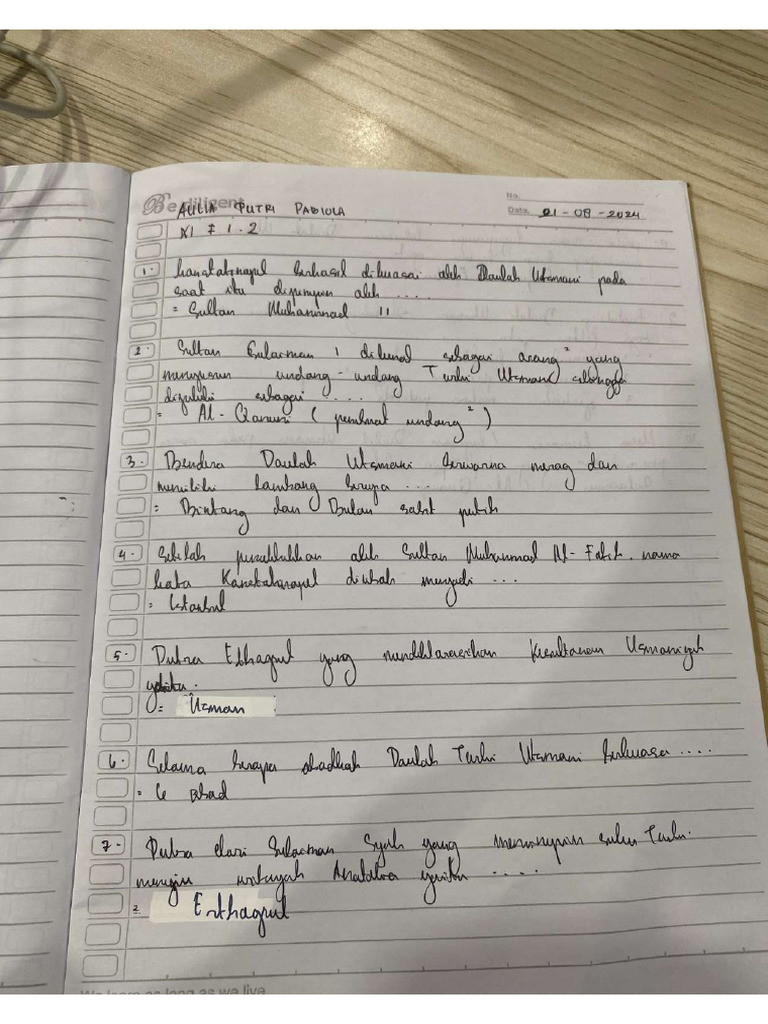 Be diligent
No.
AULIA PUTRI PABIOLA
Date. 01-08-2024
XI F 1.2
1. Konstantinopel berhasil dikuasai oleh Daulah Utsmani pada
saat itu dipimpin oleh ....
= Sultan Muhammad II
2. Sultan Sulaiman 1 dikenal sebagai orang² yang
menyusun undang-undang Turki Utsmani sehingga
dijuluki sebagai ....
= Al-Qanuni (pembuat undang²)
3. Bendera Daulah Utsmani berwarna merag dan
memiliki lambang berupa ...
= Bintang dan Bulan sabit putih
4. Setelah penaklukkan oleh Sultan Muhammad Al-Fatih. nama
kota Konstatinopel diubah menjadi ...
= Istanbul
5. Putra Ethagrul yang mendeklarasikan Kesultanan Usmaniyah
yaitu.
= Usman
6. Selama berapa abadkah Daulah Turki Utsmani berkuasa ....
= 6 abad
7. Putra dari Sulaiman Syah yang memimpin suku Turki.
menuju wilayah Anatolia yaitu ....
= Erthagrul
as long as we live